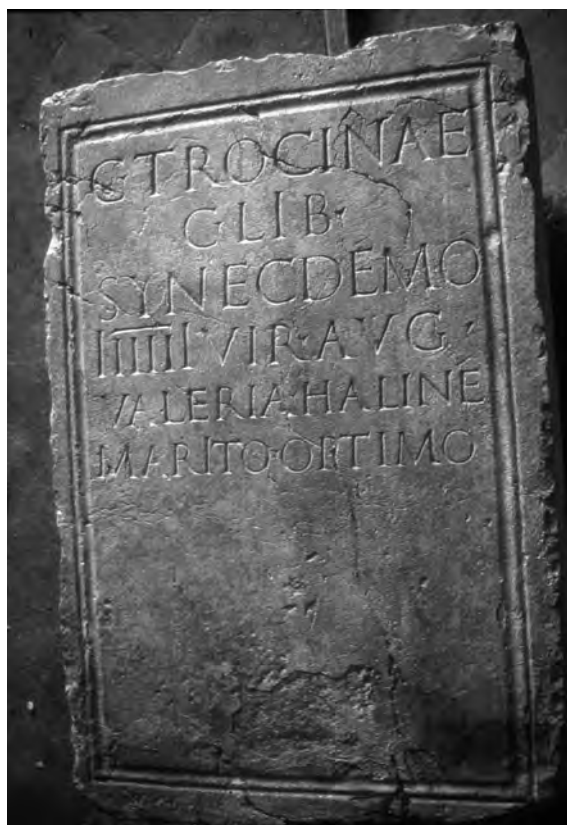 C TROCINAE
C·LIB·
SYNECDEMO
IIIIII·VIR·AVG·
VALERIA·HALINE
MARITO·OPTIMO